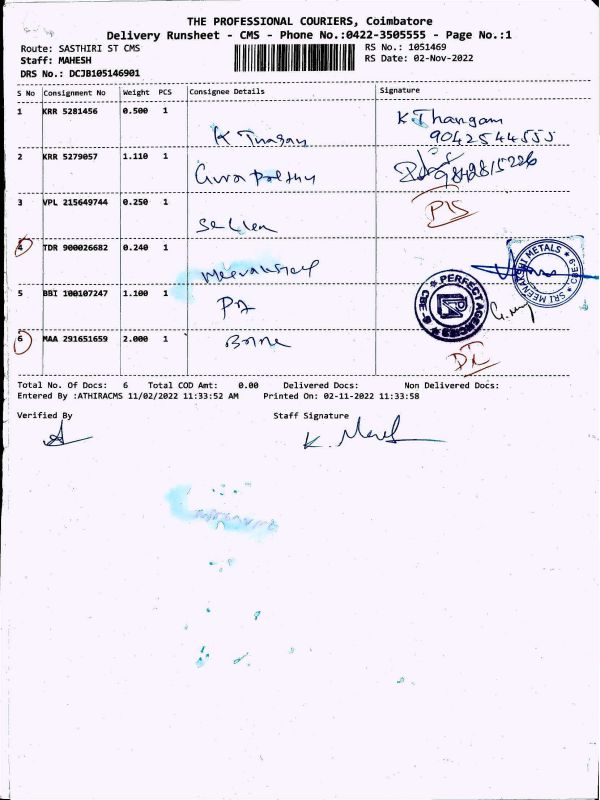 THE PROFESSIONAL COURIERS, Coimbatore
Delivery Runsheet - CMS - Phone No.:0422-3505555 - Page No.:1
Route: SASTHIRI ST CMS
Staff: MAHESH
DRS No.: DCJB105146901
RS No.: 1051469
RS Date: 02-Nov-2022
S No Consignment No Weight PCS Consignee Details Signature
1 KRR 5281456 0.500 1
K Thangam
9042544555
2 KRR 5279057 1.110 1
3 VPL 215649744 0.250 1
4 TDR 900026682 0.240 1
SRI MEENAKSHI METALS ★ CBE-9 ★
5 BBI 100107247 1.100 1
★ PERFECT AGENCIES ★ CBE-9
6 MAA 291651659 2.000 1
Total No. Of Docs: 6 Total COD Amt: 0.00 Delivered Docs: Non Delivered Docs:
Entered By :ATHIRACMS 11/02/2022 11:33:52 AM Printed On: 02-11-2022 11:33:58
Verified By Staff Signature